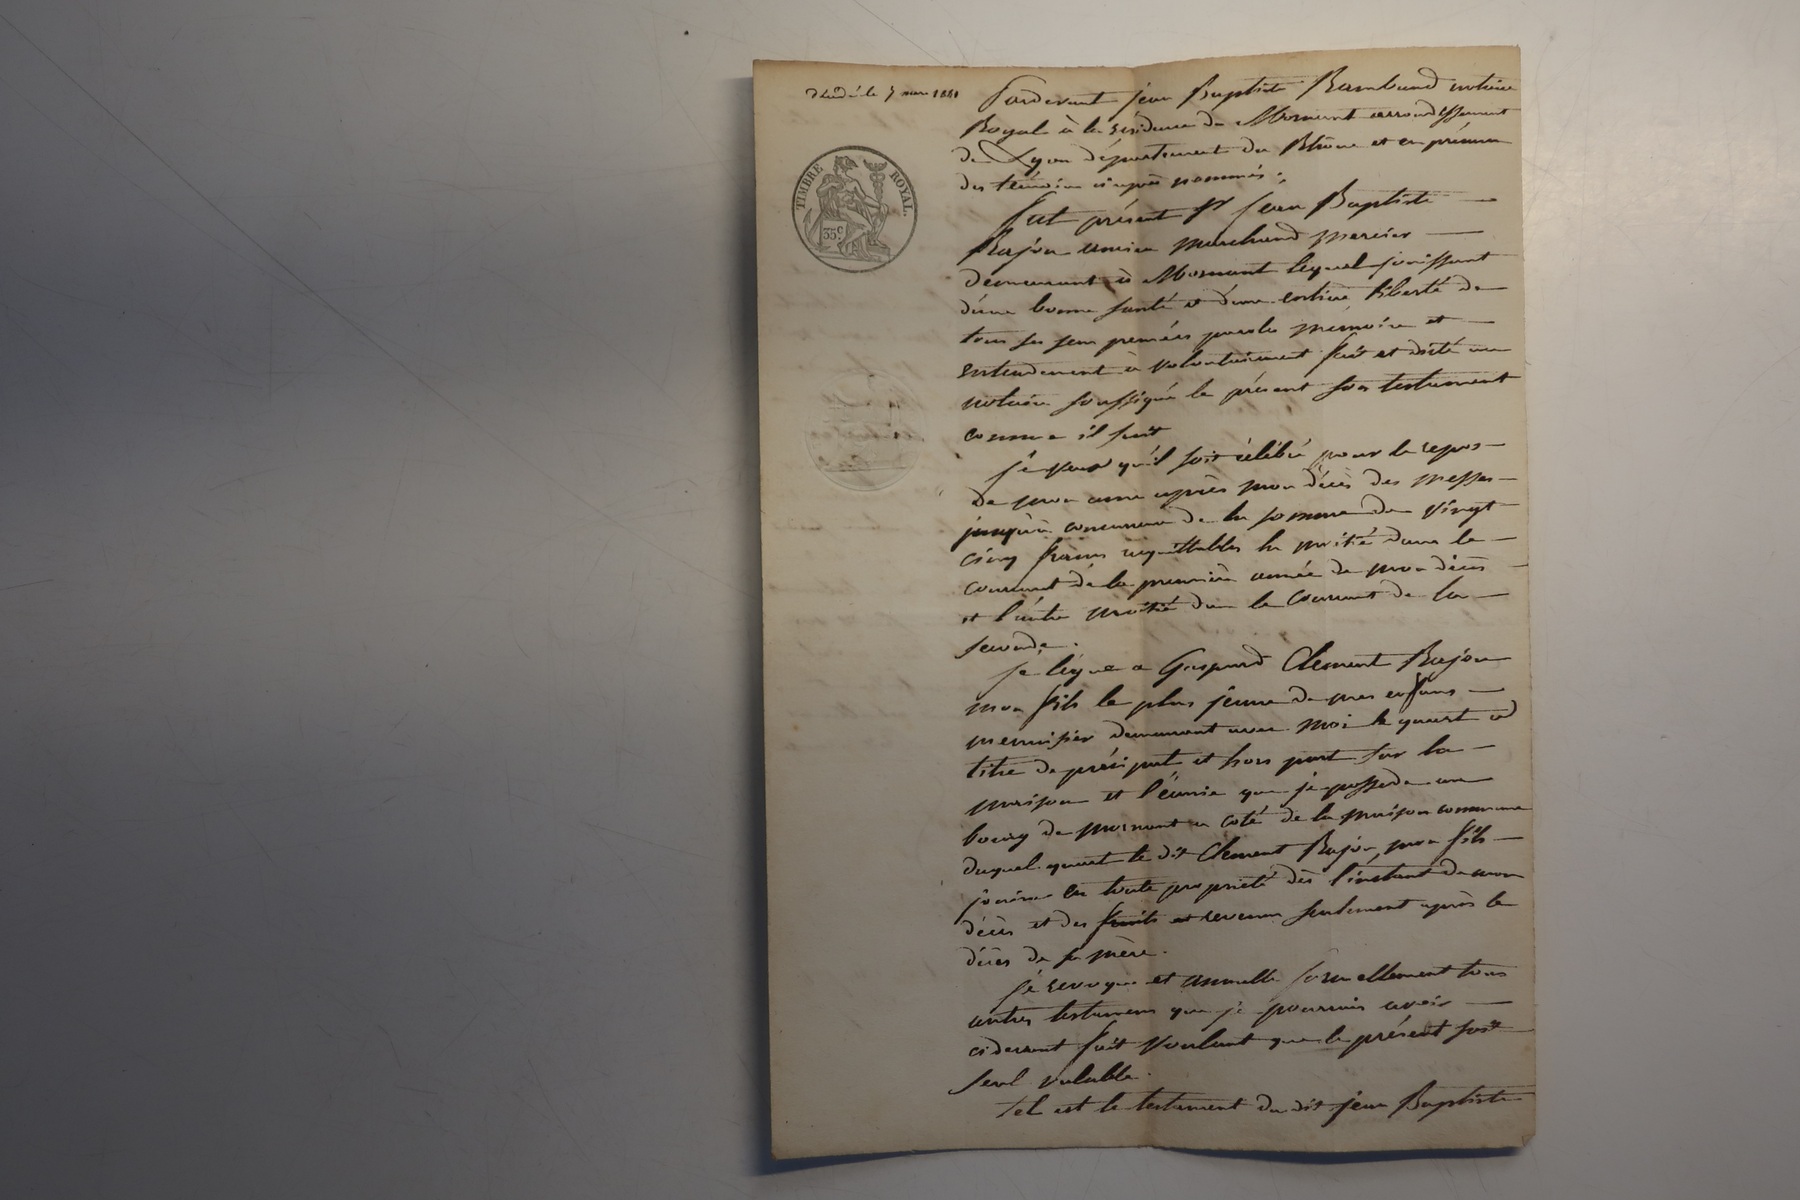 décédé le 7 mars 1841
TIMBRE ROYAL.
35 c.
Pardevant jean Baptiste Rambaud notaire
Royal à la residence de Mornant arrondissement
de Lyon département du Rhône et en présence
des témoins ci après nommés.
fut présent Sr jean Baptiste
Bajon ancien marchand mercier
demeurant à Mornant lequel jouissant
d'une bonne santé et d'une entière liberté de
tous ses sens pensées parole mémoire et
entendement a volontairement fait et dicté au
notaire soussigné le présent son testament
comme il suit
je veux qu'il soit célébré pour le repos
de mon ame après mon décès des messes
jusqu'à concurrence de la somme de vingt
cinq francs acquittables la moitié dans le
courant de la première année de mon décès
et l'autre moitié dans le courant de la
seconde.
je lègue a Gaspard Clement Bajon
mon fils le plus jeune de mes enfans
menuisier demeurant avec moi le quart a
titre de préciput et hors part sur la
maison et l'écurie que je possede au
bourg de mornant a coté de la maison commune
duquel quart le dit Clement Bajon, mon fils
jouira en toute propriété dès l'instant de mon
décès et des fruits et revenus seulement après le
décès de sa mère.
je revoque et annulle formellement tous
autres testamens que je pourrais avoir
cidevant fait voulant que le présent soit
seul valable.
tel est le testament du dit jean Baptiste